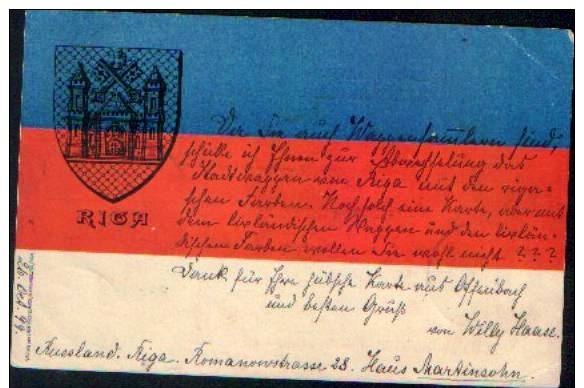 Da Sie auch Wappensammlerin sind,
schicke ich Ihnen zur Abwechselung das
Stadtwappen von Riga mit den riga-
schen Farben. Noch solch eine Karte, aber mit
dem livländischen Wappen und den livlän-
dischen Farben wollen Sie wohl nicht ???
RIGA
Dank für Ihre hübsche Karte aus Offenbach
und besten Gruß
von Willy Haase.
Russland. Riga. Romanowstrasse 28. Haus Martinsohn.